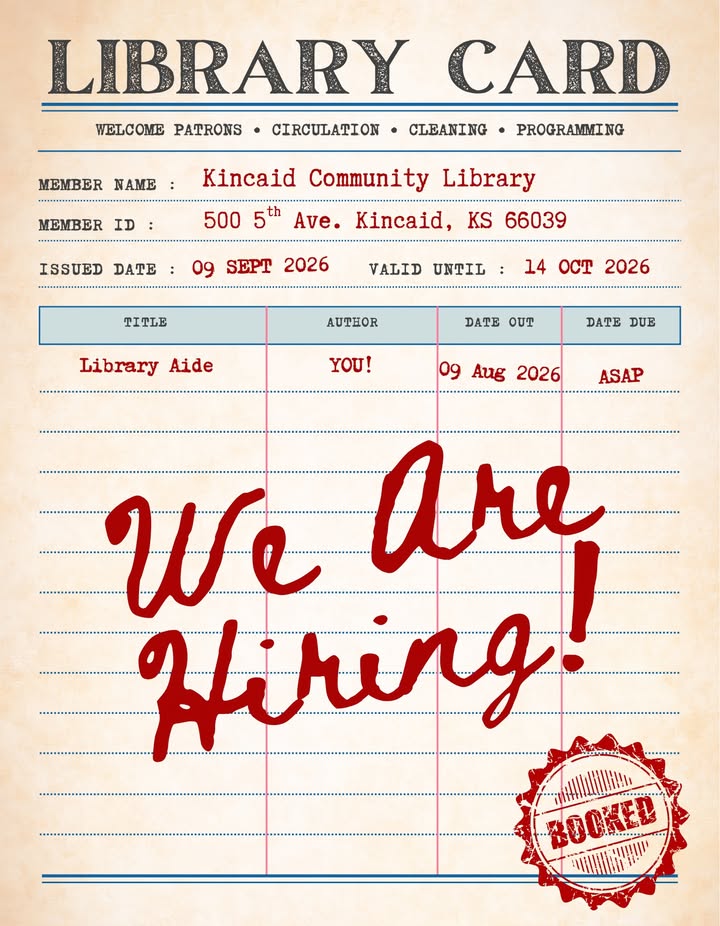 LIBRARY CARD
WELCOME PATRONS • CIRCULATION • CLEANING • PROGRAMMING
MEMBER NAME : Kincaid Community Library
MEMBER ID : 500 5th Ave. Kincaid, KS 66039
ISSUED DATE : 09 SEPT 2026 VALID UNTIL : 14 OCT 2026
TITLE AUTHOR DATE OUT DATE DUE
Library Aide YOU! 09 Aug 2026 ASAP
We Are
Hiring!
BOOKED